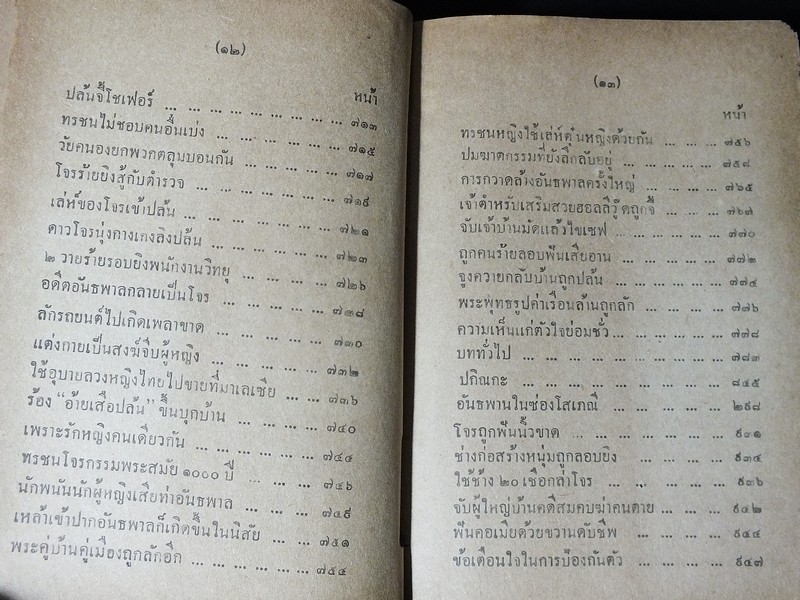 (๑๒)
หน้า
ปล้นจี้โชเฟอร์ ... ... ... ... ... ... ... ๗๑๓
ทรชนไม่ชอบคนอื่นเบ่ง ... ... ... ... ... ๗๑๕
วัยคนองยกพวกตลุมบอนกัน ... ... ... ... ๗๑๗
โจรร้ายยิงสู้กับตำรวจ ... ... ... ... ... ๗๑๙
เล่ห์ของโจรเข้าปล้น ... ... ... ... ... ๗๒๑
ดาวโจรนุ่งกางเกงลิงปล้น ... ... ... ... ๗๒๓
๒ วายร้ายรอบยิงพนักงานวิทยุ ... ... ... ๗๒๖
อดีตอันธพาลกลายเป็นโจร ... ... ... ... ๗๒๘
ลักรถยนต์ไปเกิดเพลาขาด ... ... ... ... ๗๓๐
แต่งกายเป็นสงฆ์จีบผู้หญิง ... ... ... ... ๗๓๒
ใช้อุบายลวงหญิงไทยไปขายที่มาเลเซีย ... ... ๗๓๖
ร้อง “อ้ายเสือปล้น” ขึ้นบุกบ้าน ... ... ... ๗๔๐
เพราะรักหญิงคนเดียวกัน ... ... ... ... ๗๔๔
ทรชนโจรกรรมพระสมัย ๑๐๐๐ ปี ... ... ... ๗๔๖
นักพนันนักผู้หญิงเสียท่าอันธพาล ... ... ... ๗๔๙
เหล้าเข้าปากอันธพาลก็เกิดขึ้นในนิสัย ... ... ๗๕๑
พระคู่บ้านคู่เมืองถูกลักอีก ... ... ... ... ๗๕๔
(๑๓)
หน้า
ทรชนหญิงใช้เล่ห์ตุ๋นหญิงด้วยกัน ... ... ... ๗๕๖
ปมฆาตกรรมที่ยังลึกลับอยู่ ... ... ... ... ๗๕๘
การกวาดล้างอันธพาลครั้งใหญ่ ... ... ... ๗๖๕
เจ้าตำหรับเสริมสวยฮอลลีวู๊ดถูกจี้ ... ... ... ๗๖๗
จับเจ้าบ้านมัดแล้วไขเซฟ ... ... ... ... ๗๗๐
ถูกคนร้ายลอบฟันเสียอาน ... ... ... ... ๗๗๒
จูงควายกลับบ้านถูกปล้น ... ... ... ... ๗๗๔
พระพุทธรูปค่าเรือนล้านถูกลัก ... ... ... ๗๗๖
ความเห็นแก่ตัวใจย่อมชั่ว ... ... ... ... ๗๗๘
บททั่วไป ... ... ... ... ... ... ๗๘๓
ปกิณกะ ... ... ... ... ... ... ๘๔๕
อันธพานในซ่องโสเภณี ... ... ... ... ๒๙๘
โจรถูกฟันนิ้วขาด ... ... ... ... ... ๙๓๑
ช่างก่อสร้างหนุ่มถูกลอบยิง ... ... ... ๙๓๔
ใช้ช้าง ๒๐ เชือกล่าโจร ... ... ... ... ๙๓๖
จับผู้ใหญ่บ้านคดีสมคบฆ่าคนตาย ... ... ... ๙๔๒
ฟันคอเมียด้วยขวานดับชีพ ... ... ... ... ๙๔๔
ข้อเตือนใจในการป้องกันตัว ... ... ... ๙๔๗